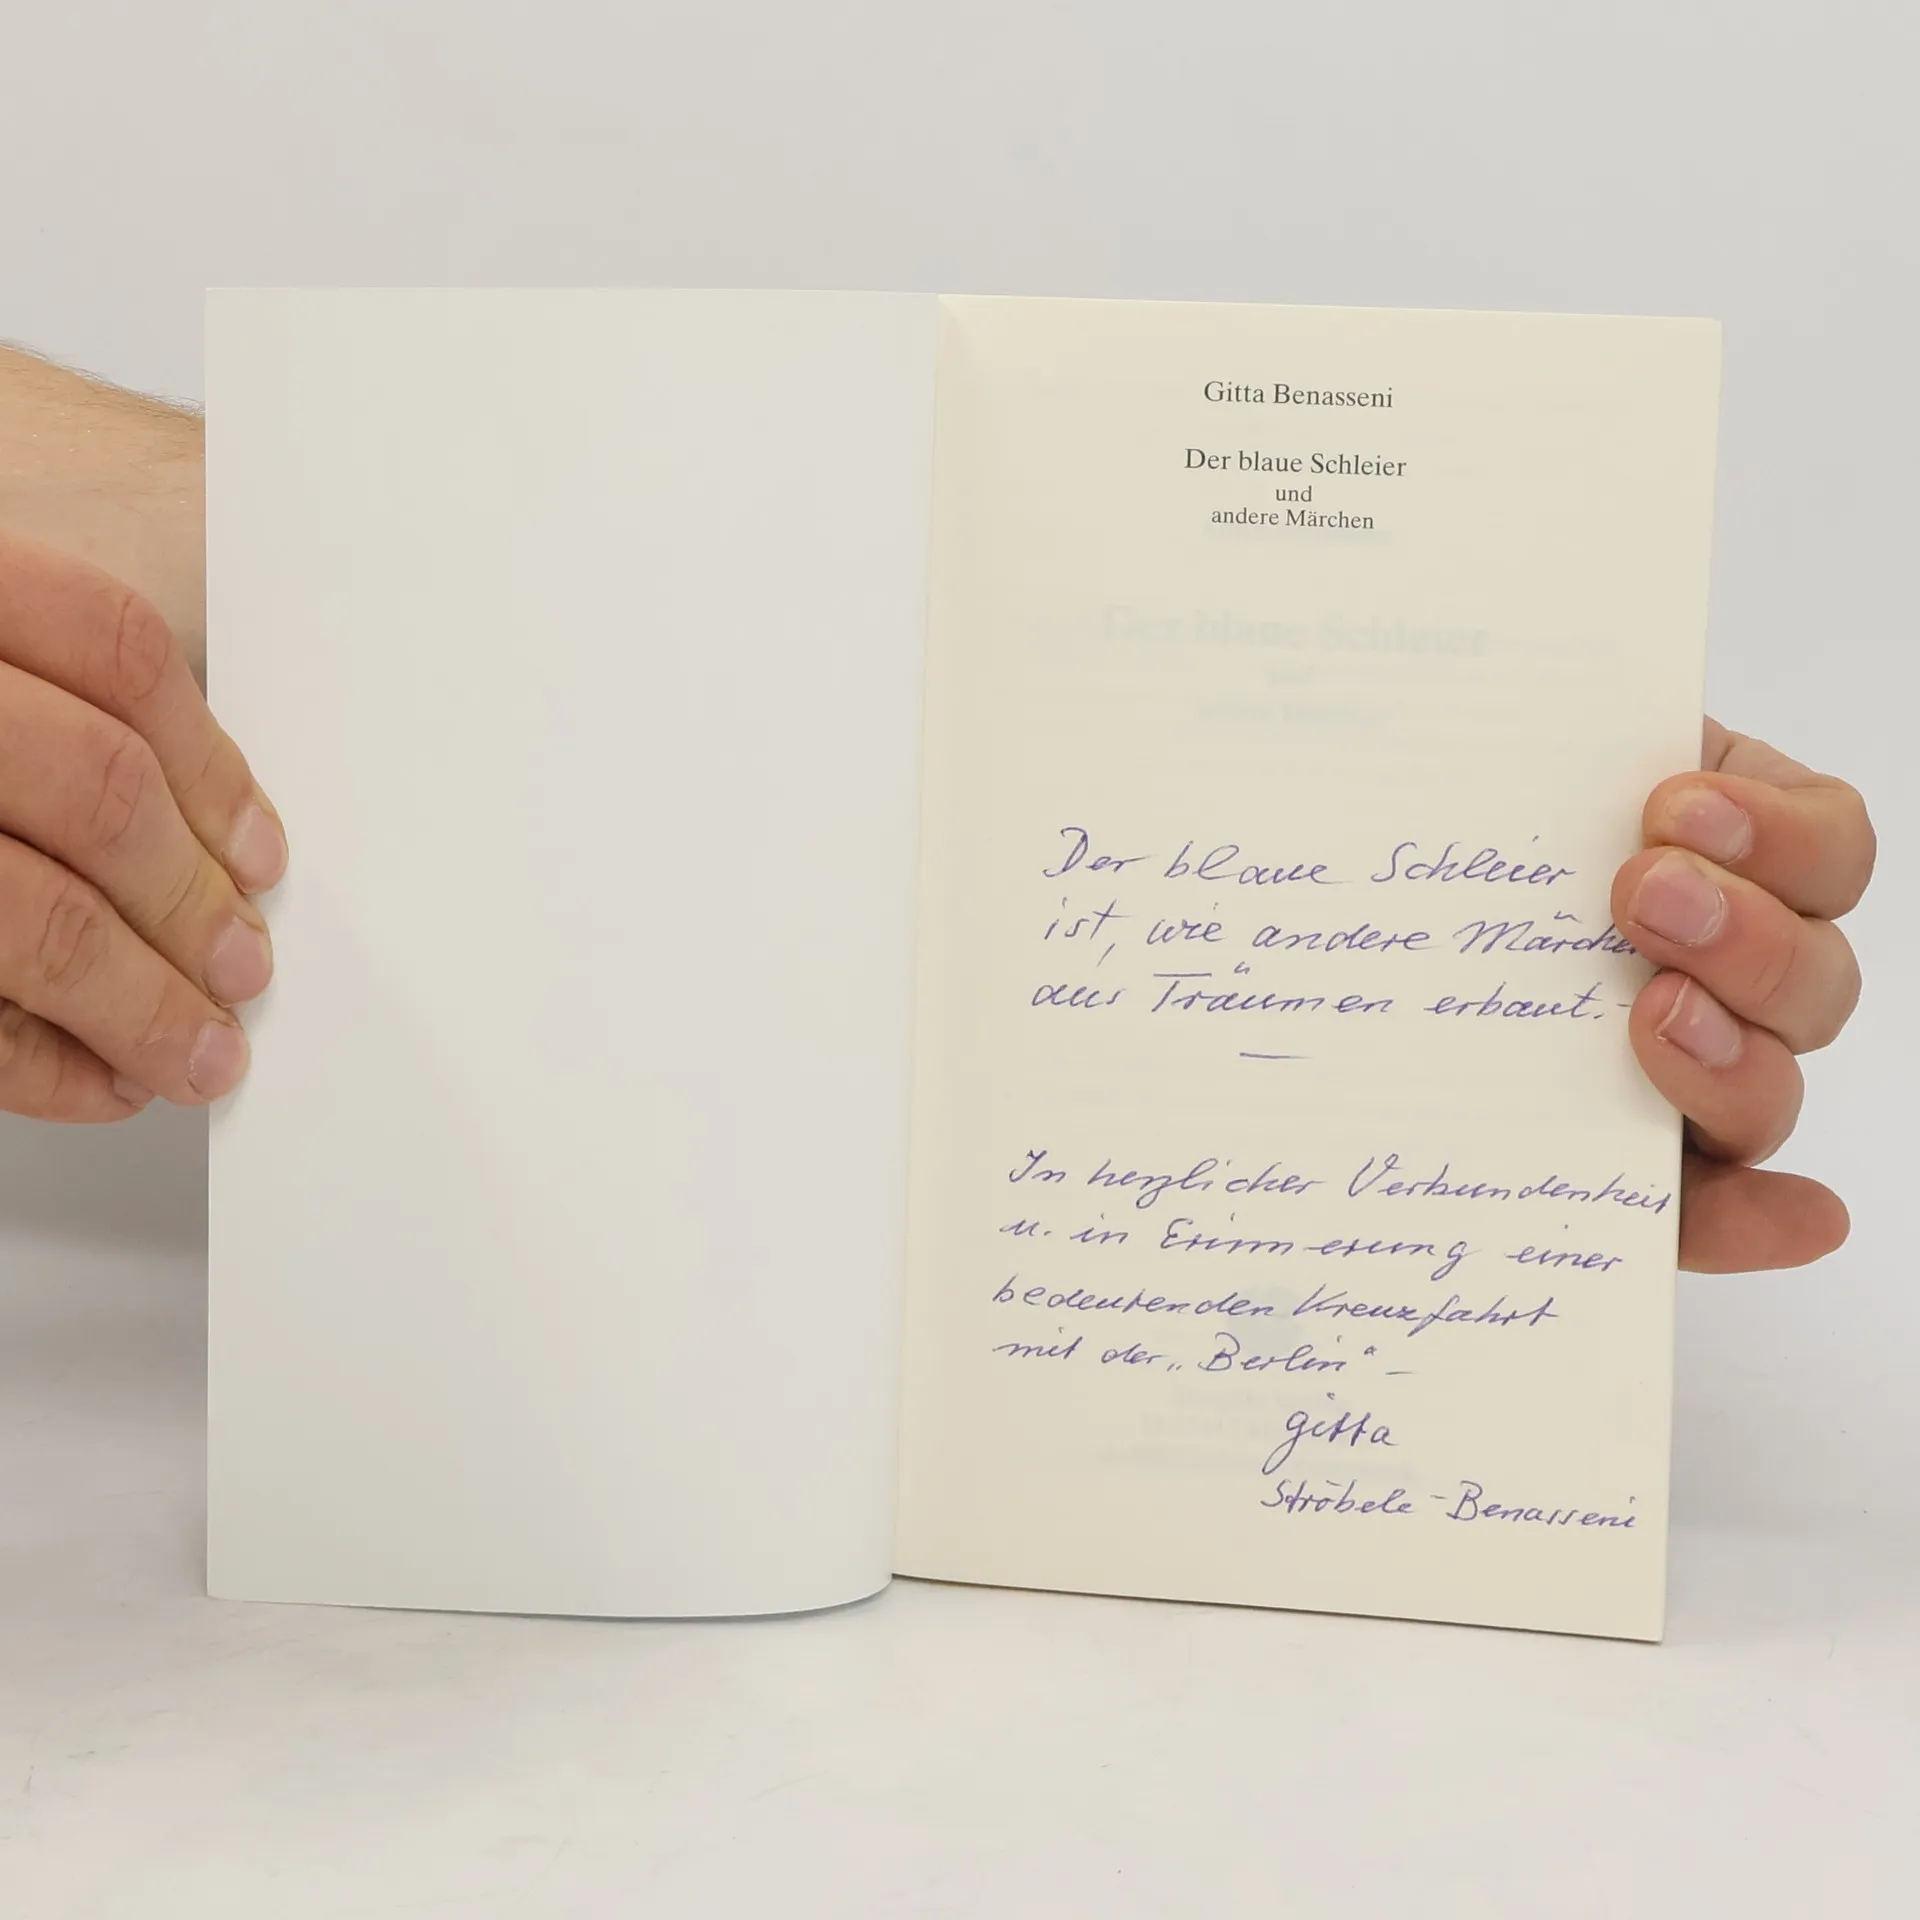 Gitta Benasseni
Der blaue Schleier
und
andere Märchen
Der blaue Schleier
ist, wie andere Märchen
aus Träumen erbaut. –
In herzlicher Verbundenheit
u. in Erinnerung einer
bedeutenden Kreuzfahrt
mit der „Berlin“ –
Gitta
Ströbele-Benasseni